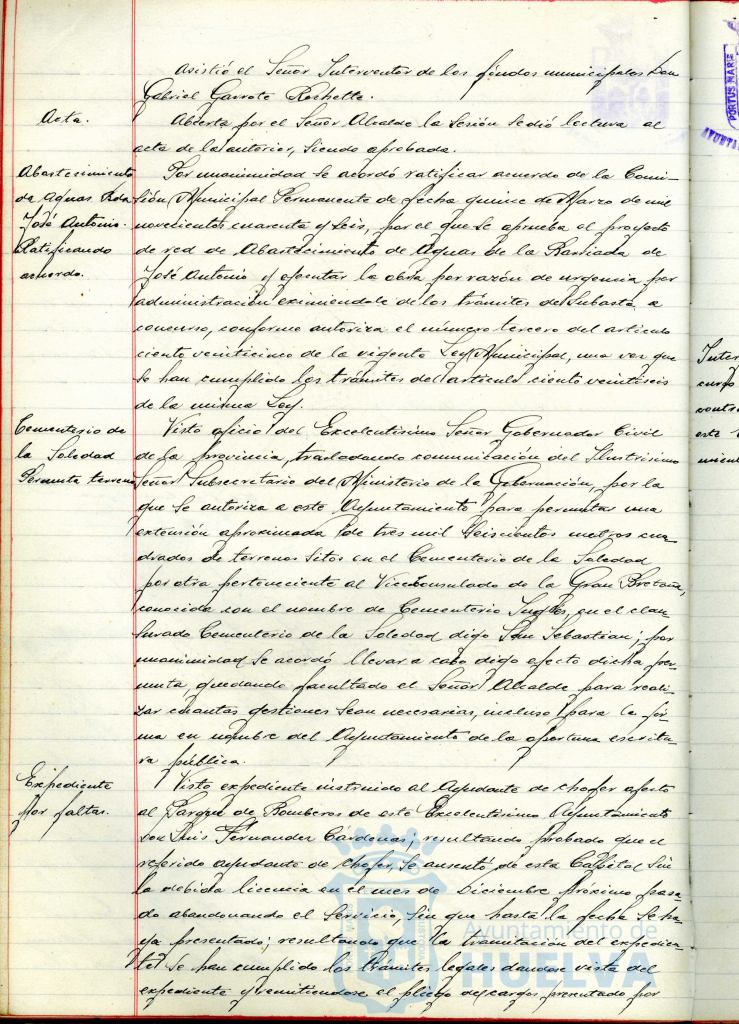 Asistió el Señor Interventor de los fondos municipales Don
Gabriel Garrote Rochette.
Acta.
Abierta por el Señor Alcalde la Sesión se dió lectura al
acta de la anterior, siendo aprobada.
Abastecimiento
de Aguas Bda
José Antonio.
Ratificando
acuerdo.
Por unanimidad se acordó ratificar acuerdo de la Comi-
sión Municipal Permanente de fecha quince de Marzo de mil
novecientos cuarenta y seis, por el que se aprueba el proyecto
de red de Abastecimiento de Aguas de la Barriada de
José Antonio y ejecutar la obra por razón de urgencia por
administración eximiendole de los trámites de Subasta o
concurso, conforme autoriza el número tercero del articulo
ciento veinticinco de la vigente Ley Municipal, una vez que
se han cumplido los trámites del articulo ciento veintiseis
de la misma Ley.
Cementerio de
la Soledad
Permuta terreno
Visto oficio del Excelentisimo Señor Gobernador Civil
de la provincia, trasladando comunicación del Ilustrisimo
Señor Subsecretario del Ministerio de la Gobernación, por la
que se autoriza a este Ayuntamiento para permutar una
extensión aproximada de tres mil seiscientos metros cua-
drados de terrenos sitos en el Cementerio de la Soledad
por otra perteneciente al Viceconsulado de la Gran Bretaña,
conocida con el nombre de Cementerio Ingles, en el clau-
surado Cementerio de la Soledad digo San Sebastian; por
unanimidad se acordó llevar a cabo digo efecto dicha per-
muta, quedando facultado el Señor Alcalde para reali-
zar cuantas gestiones sean necesarias, incluso para la fir-
ma en nombre del Ayuntamiento de la oportuna escritu-
ra pública.
Expediente
por faltas.
Visto expediente instruido al Ayudante de chofer afecto
al Parque de Bomberos de este Excelentisimo Ayuntamiento
Don Luis Fernandez Cardenas, resultando probado que el
referido ayudante de chofer, se ausentó de esta Capital sin
la debida licencia en el mes de Diciembre próximo pasa-
do abandonando el servicio, sin que hasta la fecha se ha-
ya presentado; resultando que la tramitación del expedien-
te se han cumplido los trámites legales dandose vista del
expediente y remitiendose el pliego de cargos presentado por
Ayuntamiento de
HUELVA
PORTUS MARIS
AYUNTA
Inter
curso
contra
este
mient